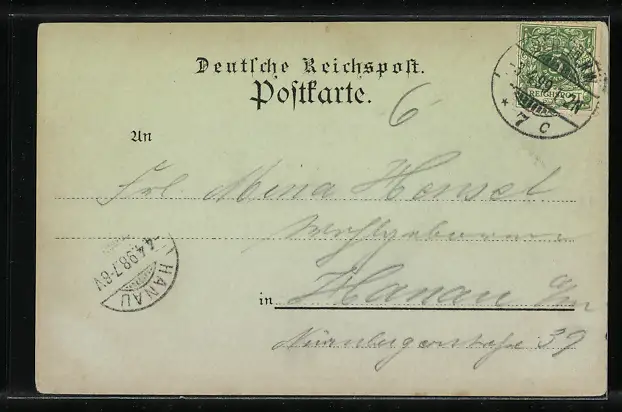 Deutsche Reichspost.
Postkarte.
6
REICHSPOST
* 7 c
An
Frl. Mina Hensel
Wohlgeboren
in Hanau a/m
Nürnbergerstraße 39
HANAU
4.4.98.7-8V